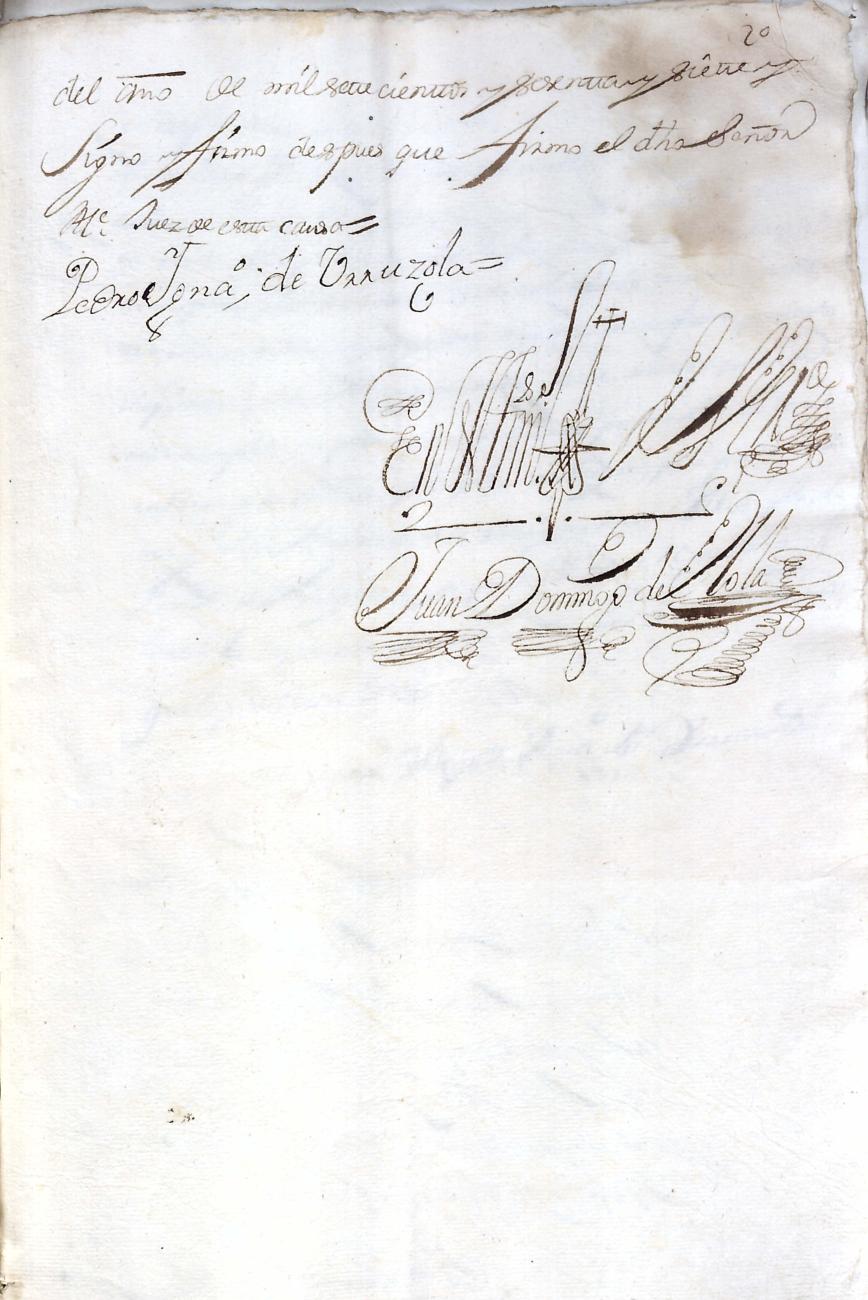 20
del año de mil setecientos y sesenta y siete y
Signo y firmo despues que firmo el dho Señor
Alc. Juez de esta causa=
Pedro Igna.º de Urruzola=
En testim.º de Verd
Juan Domingo de